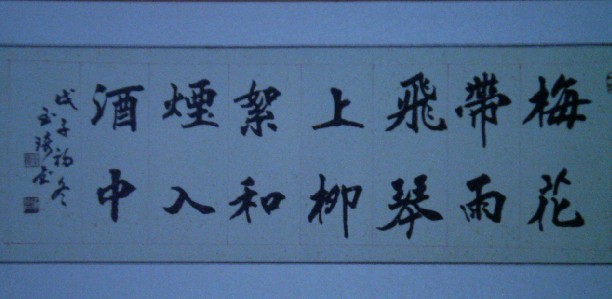 梅花
帶雨
飛琴
上柳
絮和
煙入
酒中
戊子初冬
玉琦书